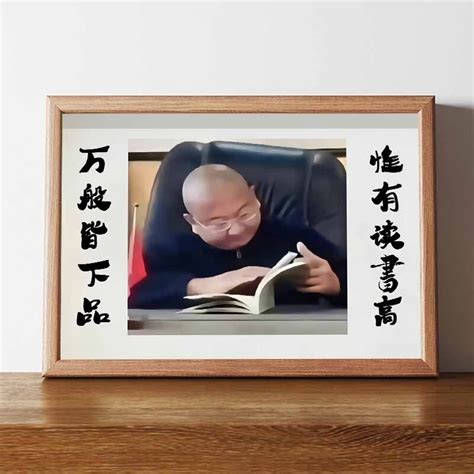 万般皆下品
惟有读書高